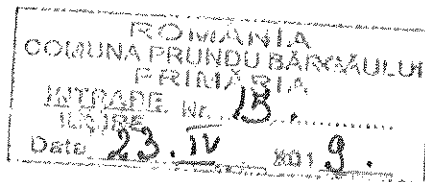 ROMÂNIA
COMUNA PRUNDU BÂRGĂULUI
PRIMĂRIA
INTRARE Nr. 15.
IEȘIRE
Data 23. IV 201 9.